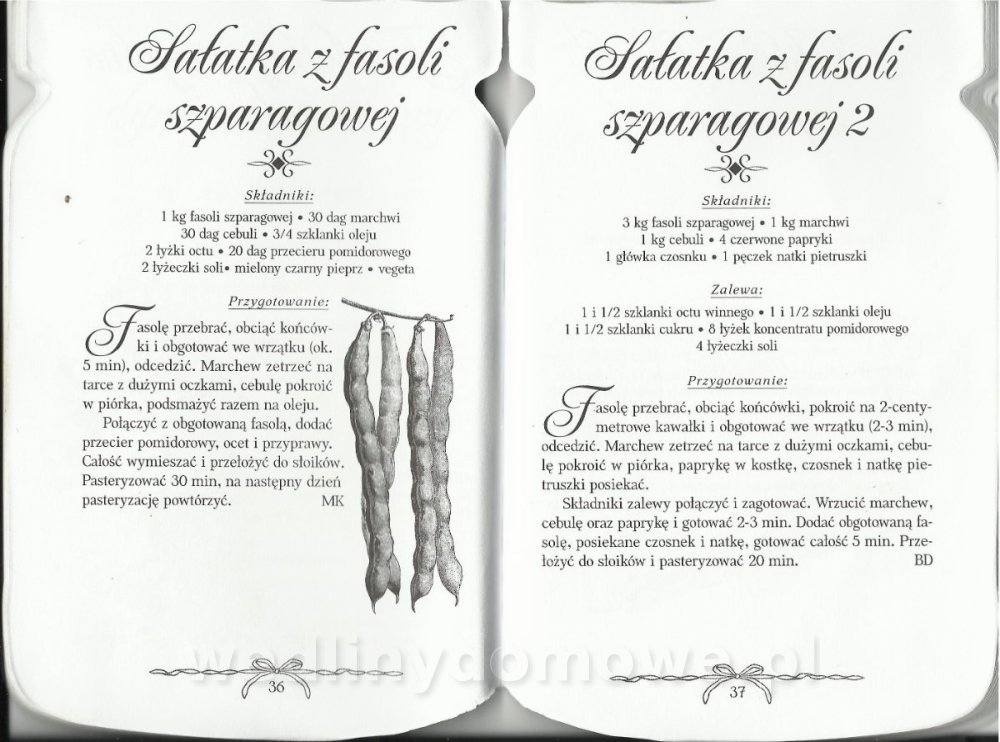 Sałatka z fasoli
szparagowej
Składniki:
1 kg fasoli szparagowej • 30 dag marchwi
30 dag cebuli • 3/4 szklanki oleju
2 łyżki octu • 20 dag przecieru pomidorowego
2 łyżeczki soli• mielony czarny pieprz • vegeta
Przygotowanie:
Fasolę przebrać, obciąć końców-
ki i obgotować we wrzątku (ok.
5 min), odcedzić. Marchew zetrzeć na
tarce z dużymi oczkami, cebulę pokroić
w piórka, podsmażyć razem na oleju.
Połączyć z obgotowaną fasolą, dodać
przecier pomidorowy, ocet i przyprawy.
Całość wymieszać i przełożyć do słoików.
Pasteryzować 30 min, na następny dzień
pasteryzację powtórzyć. MK
36
Sałatka z fasoli
szparagowej 2
Składniki:
3 kg fasoli szparagowej • 1 kg marchwi
1 kg cebuli • 4 czerwone papryki
1 główka czosnku • 1 pęczek natki pietruszki
Zalewa:
1 i 1/2 szklanki octu winnego • 1 i 1/2 szklanki oleju
1 i 1/2 szklanki cukru • 8 łyżek koncentratu pomidorowego
4 łyżeczki soli
Przygotowanie:
Fasolę przebrać, obciąć końcówki, pokroić na 2-centy-
metrowe kawałki i obgotować we wrzątku (2-3 min),
odcedzić. Marchew zetrzeć na tarce z dużymi oczkami, cebu-
lę pokroić w piórka, paprykę w kostkę, czosnek i natkę pie-
truszki posiekać.
Składniki zalewy połączyć i zagotować. Wrzucić marchew,
cebulę oraz paprykę i gotować 2-3 min. Dodać obgotowaną fa-
solę, posiekane czosnek i natkę, gotować całość 5 min. Prze-
łożyć do słoików i pasteryzować 20 min. BD
37
wedlinydomowe.pl